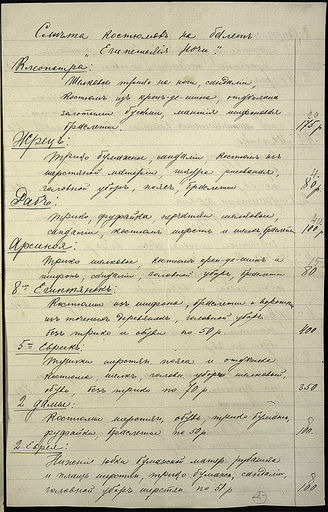 Смѣта костюмовъ на балетъ
"Египетскія ночи".
Клеопатра:
Шелковое трико на ноги, сандаліи,
Костюмъ изъ крепъ-де-шина, отдѣлка
золотыми бусами, мантія шифоновая
браслеты. 175 р
Жрецъ:
Трико бумажное, сандаліи костюмъ изъ
шерстяной матеріи, шкура рисованая,
головной уборъ, поясъ, браслеты 80 р
Рабъ:
Трико, фуфайка шелковое,
сандаліи, костюмъ шерсть и шелкъ, браслеты 100 р
Арсиноя:
Трико шелковое, костюмъ креп-де-шинъ и
шифонъ, сандаліи, головной уборъ, браслеты 80
8ъ Египтянокъ:
Костюмы изъ шифона, браслеты и воротн
изъ точеныхъ деревяшекъ, головной уборъ
безъ трико и обуви по 50 р. 400
5ъ Евреекъ:
Туники шерстян. пояса и отдѣлка
шелк. головн. уборы шелковый,
обувь, безъ трико по 70 р. 350
2 дамы:
Костюмы шерстян, обувь, трико бумажн,
фуфайки браслеты по 50 р 100.
2 Еврея:
Нижнія юбки бумажной матер. рубашки
и плащъ шерстян, трико бумажн, сандаліи,
головной уборъ шерстян. по 50 р 100